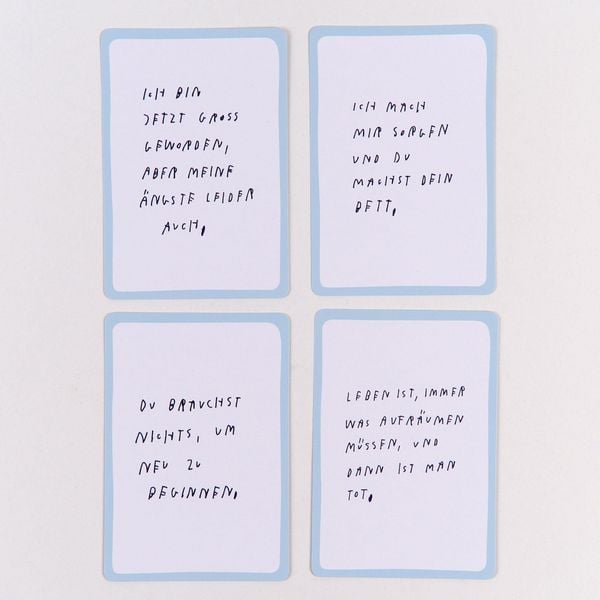 ICH BIN
JETZT GROSS
GEWORDEN,
ABER MEINE
ÄNGSTE LEIDER
AUCH,
ICH MACH
MIR SORGEN
UND DU
MACHST DEIN
BETT,
DU BRAUCHST
NICHTS, UM
NEU ZU
BEGINNEN,
LEBEN IST, IMMER
WAS AUFRÄUMEN
MÜSSEN, UND
DANN IST MAN
TOT,